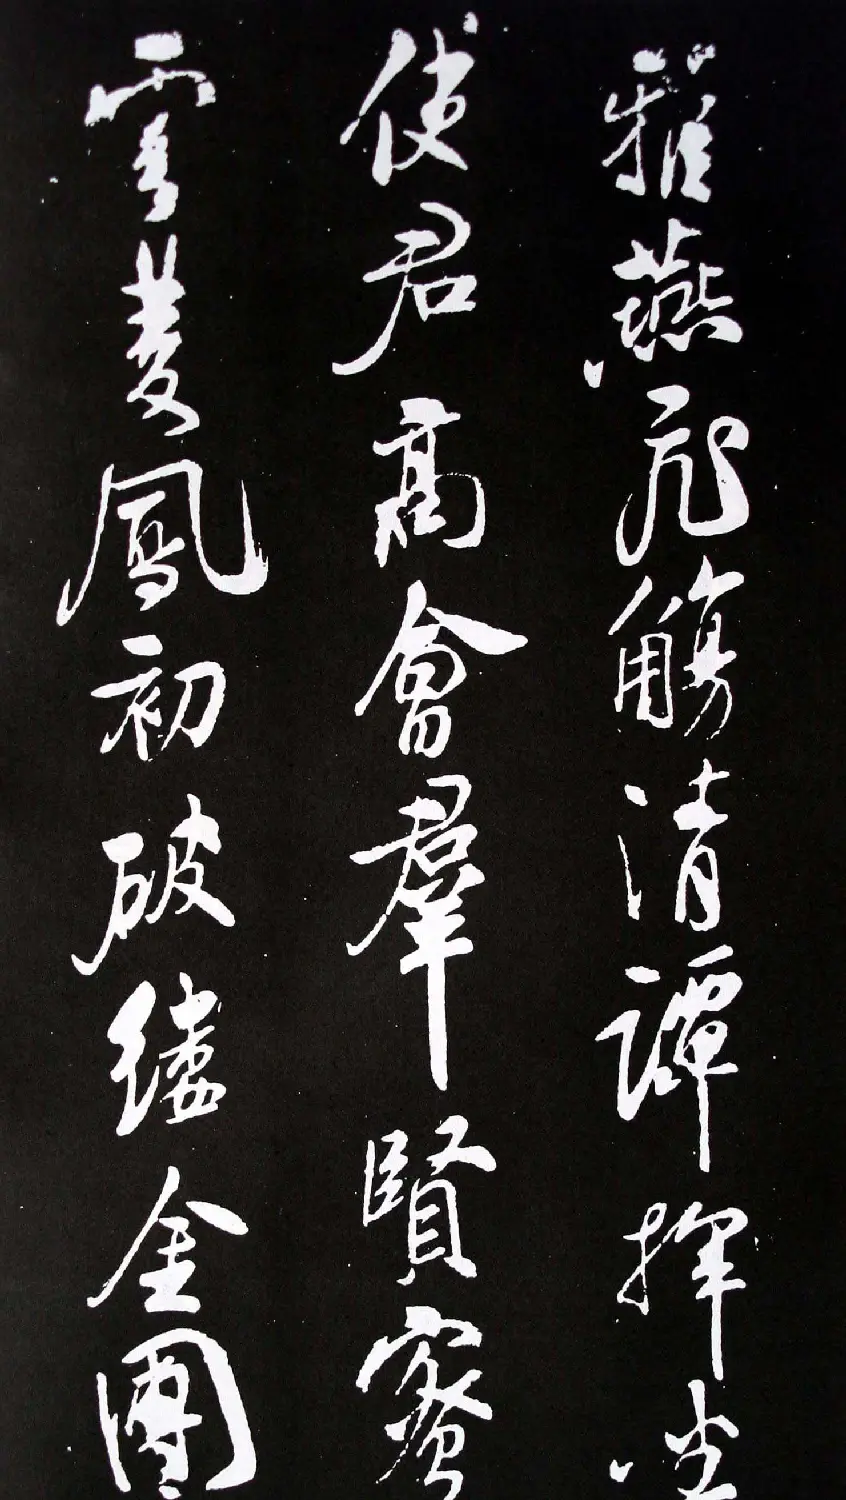 雅燕飛觴清譚揮
使君高會羣賢密
雲雙鳳初破縷金團